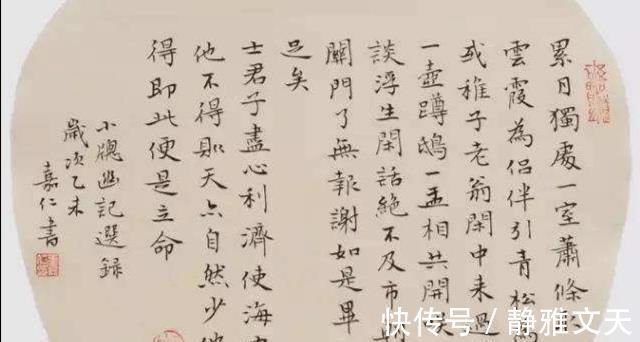 累日獨處一室蕭條
雲霞為侶伴引青松
或稚子老翁閑中來過
一壺蹲鴟一盂相共開
談浮生閑話絕不及市
關門了無報謝如是畢
足矣
士君子盡心利濟使海
他不得則天亦自然少他
得即此便是立命
小牕幽記選錄
歲次乙未
嘉仁書
快传号 / 静雅文天